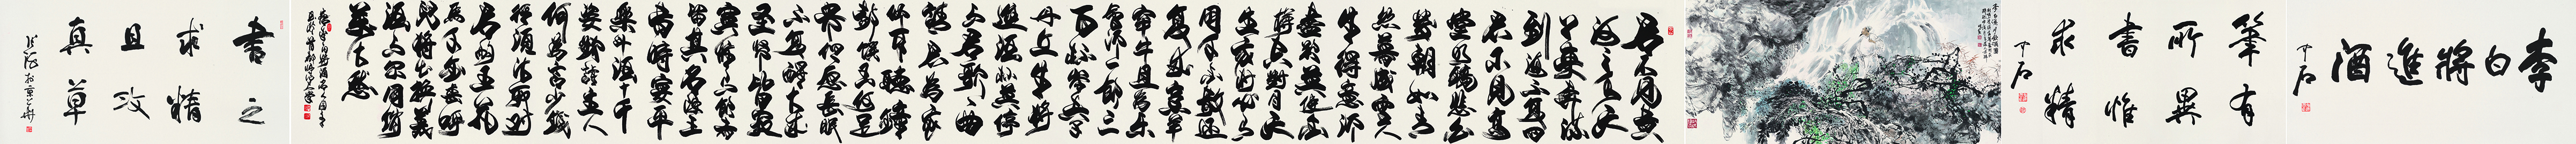 李白將進酒
中石
筆有
所異
書惟
求精
中石
君不見黃
河之水天
上來奔流
到海不復回
君不見高
堂明鏡悲白
髮朝如青
絲暮成雪人
生得意須
盡歡莫使金
樽空對月天
生我材必有
用千金散盡還
復來烹羊
宰牛且為樂
會須一飲三
百杯岑夫子
丹丘生將
進酒杯莫停
與君歌一曲
請君為我
傾耳聽鐘
鼓饌玉何足
貴但願長醉
不復醒古來
聖賢皆寂
寞惟有飲者
留其名陳王
昔時宴平
樂斗酒十千
恣歡謔主人
何為言少錢
徑須沽取對
君酌五花
馬千金裘呼
兒將出換美
酒與爾同銷
萬古愁
書之
求精
且攻
真草